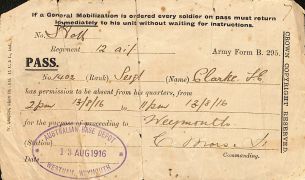 If a General Mobilization is ordered every soldier on pass must return
immediately to his unit without waiting for instructions.
No.
Regiment 12 aif Army Form B. 295.
PASS.
No. 1402 (Rank) Sergt (Name) Clarke
has permission to be absent from his quarters, from
2pm 13/8/16 to 11pm 13/8/16
for the purpose of proceeding to Weymouth
(Station)
Date
Commanding.
AUSTRALIAN BASE DEPOT
13 AUG 1916
WESTHAM, WEYMOUTH
CROWN COPYRIGHT RESERVED.